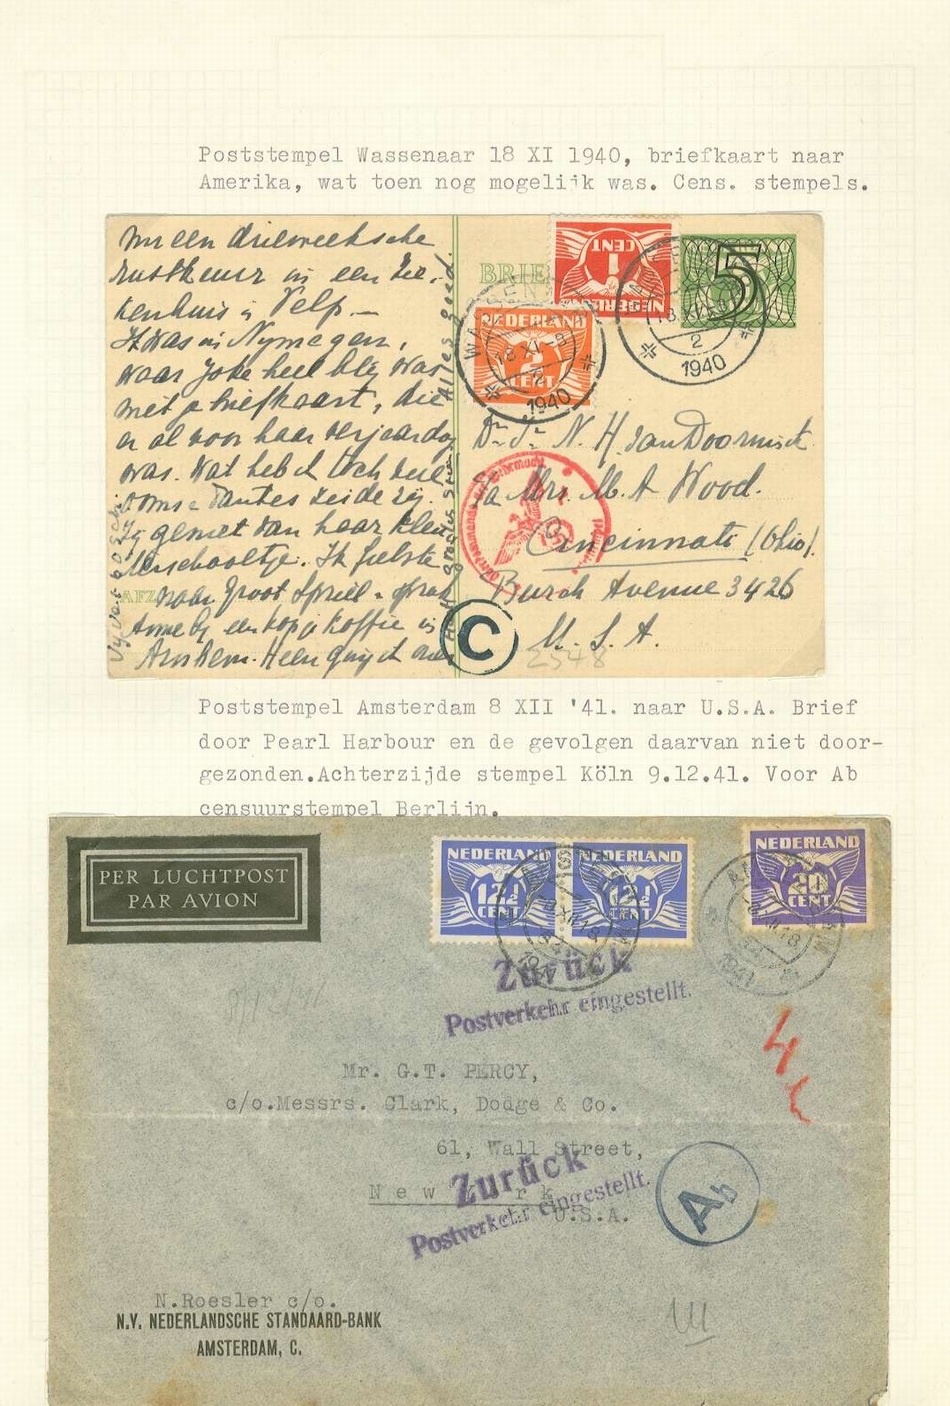 Poststempel Wassenaar 18 XI 1940, briefkaart naar
Amerika, wat toen nog mogelijk was. Cens. stempels.
een drieweeksche
rustkuur in een Zie-
kenhuis in Velp —
Ik was in Nymegen,
waar Joke heel bly was
met je briefkaart, die
er al voor haar verjaardag
was. Wat heb ik toch veel
ooms & Tantes zeide zy.
Zy geniet van haar kleu
terschooltje. Ik fietste
naar Groot Spriel &
een kopje koffie in
Arnhem.
Alles goed
BRIE
NEDERLAND
1 CENT
NEDERLAND
2 CENT
5
WASSENAAR
18 XI
2
1940
18 XI
2
1940
N. H. van Doorninck
Mrs. M. A. Wood.
Cincinnati (Ohio).
Burch Avenue 3426
U. S. A.
Oberkommando der Wehrmacht
C
2548
Poststempel Amsterdam 8 XII '41. naar U.S.A. Brief
door Pearl Harbour en de gevolgen daarvan niet door-
gezonden.Achterzijde stempel Köln 9.12.41. Voor Ab
censuurstempel Berlijn.
PER LUCHTPOST
PAR AVION
NEDERLAND
12½
CENT
NEDERLAND
12½
CENT
NEDERLAND
20
CENT
1941
1941
Zurück
Postverkehr eingestellt.
Mr. G.T. PERCY,
c/o.Messrs. Clark, Dodge & Co.
61, Wall Street,
New York
U.S.A.
Zurück
Postverkehr eingestellt.
Ab
N.Roesler c/o.
N.V. NEDERLANDSCHE STANDAARD-BANK
AMSTERDAM, C.